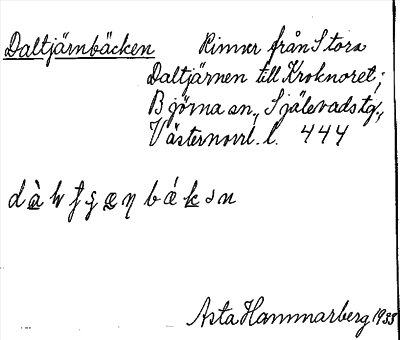 Daltjärnbäcken Rinner från Stora
Daltjärnen till Kroknoret;
Björna sn., Själevads tg.,
Västernorrl. l. 444
Asta Hammarberg 1933